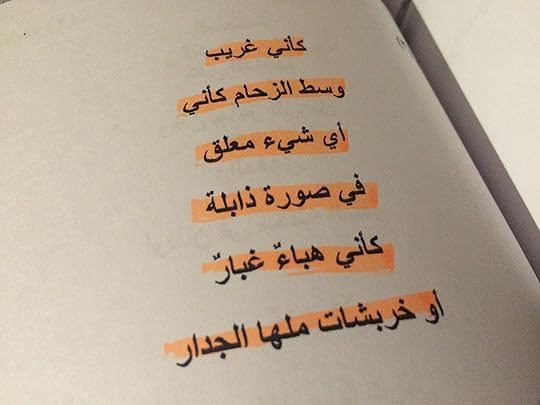 كأني غريب
وسط الزحام كأني
أي شيء معلق
في صورة ذابلة
كأني هباءٌ غبارٌ
أو خربشات ملها الجدار